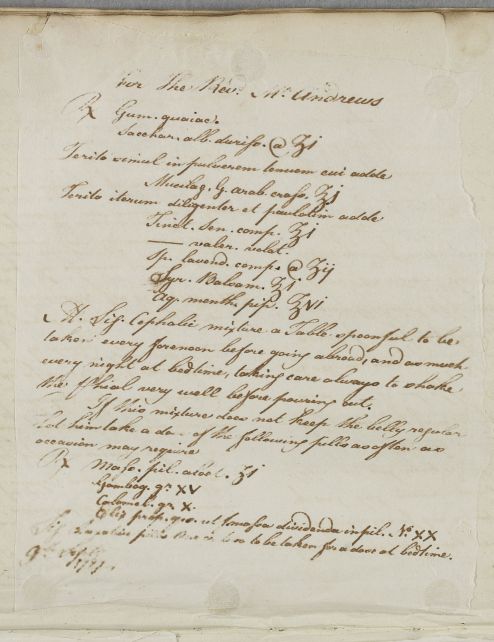 For The Revd. Mr. Andrews
℞ Gum. guaiac.
Sacchar. alb. duriss. @ ʒi
Terito simul in pulverem tenuem cui adde
Mucilag. G. arab. crass. ʒj
Terito iterum diligenter et paulatim adde
Tinct. Sen. comp. ʒj
—— valer. volat.
Sp. lavend. comp. @ ʒij
Syr. Balsam. ʒj
Aq. menth. pip. ʒvi
M. Sig. Cephalic mixture a Table spoonful to be
taken every forenoon before going abroad, and as much
every night at bedtime, taking care always to shake
the Phial very well before pouring out.
If this mixture does not keep the belly regular
let him take a dose of the following pills as often as
occasion may require
℞ Mass. pil. ʒi
Gambog. gr. XV
Calomel. gr. X.
q.s. ut f. massa dividenda in pil. No. XX
Sig. Laxative pills to be taken for a dose at bedtime.